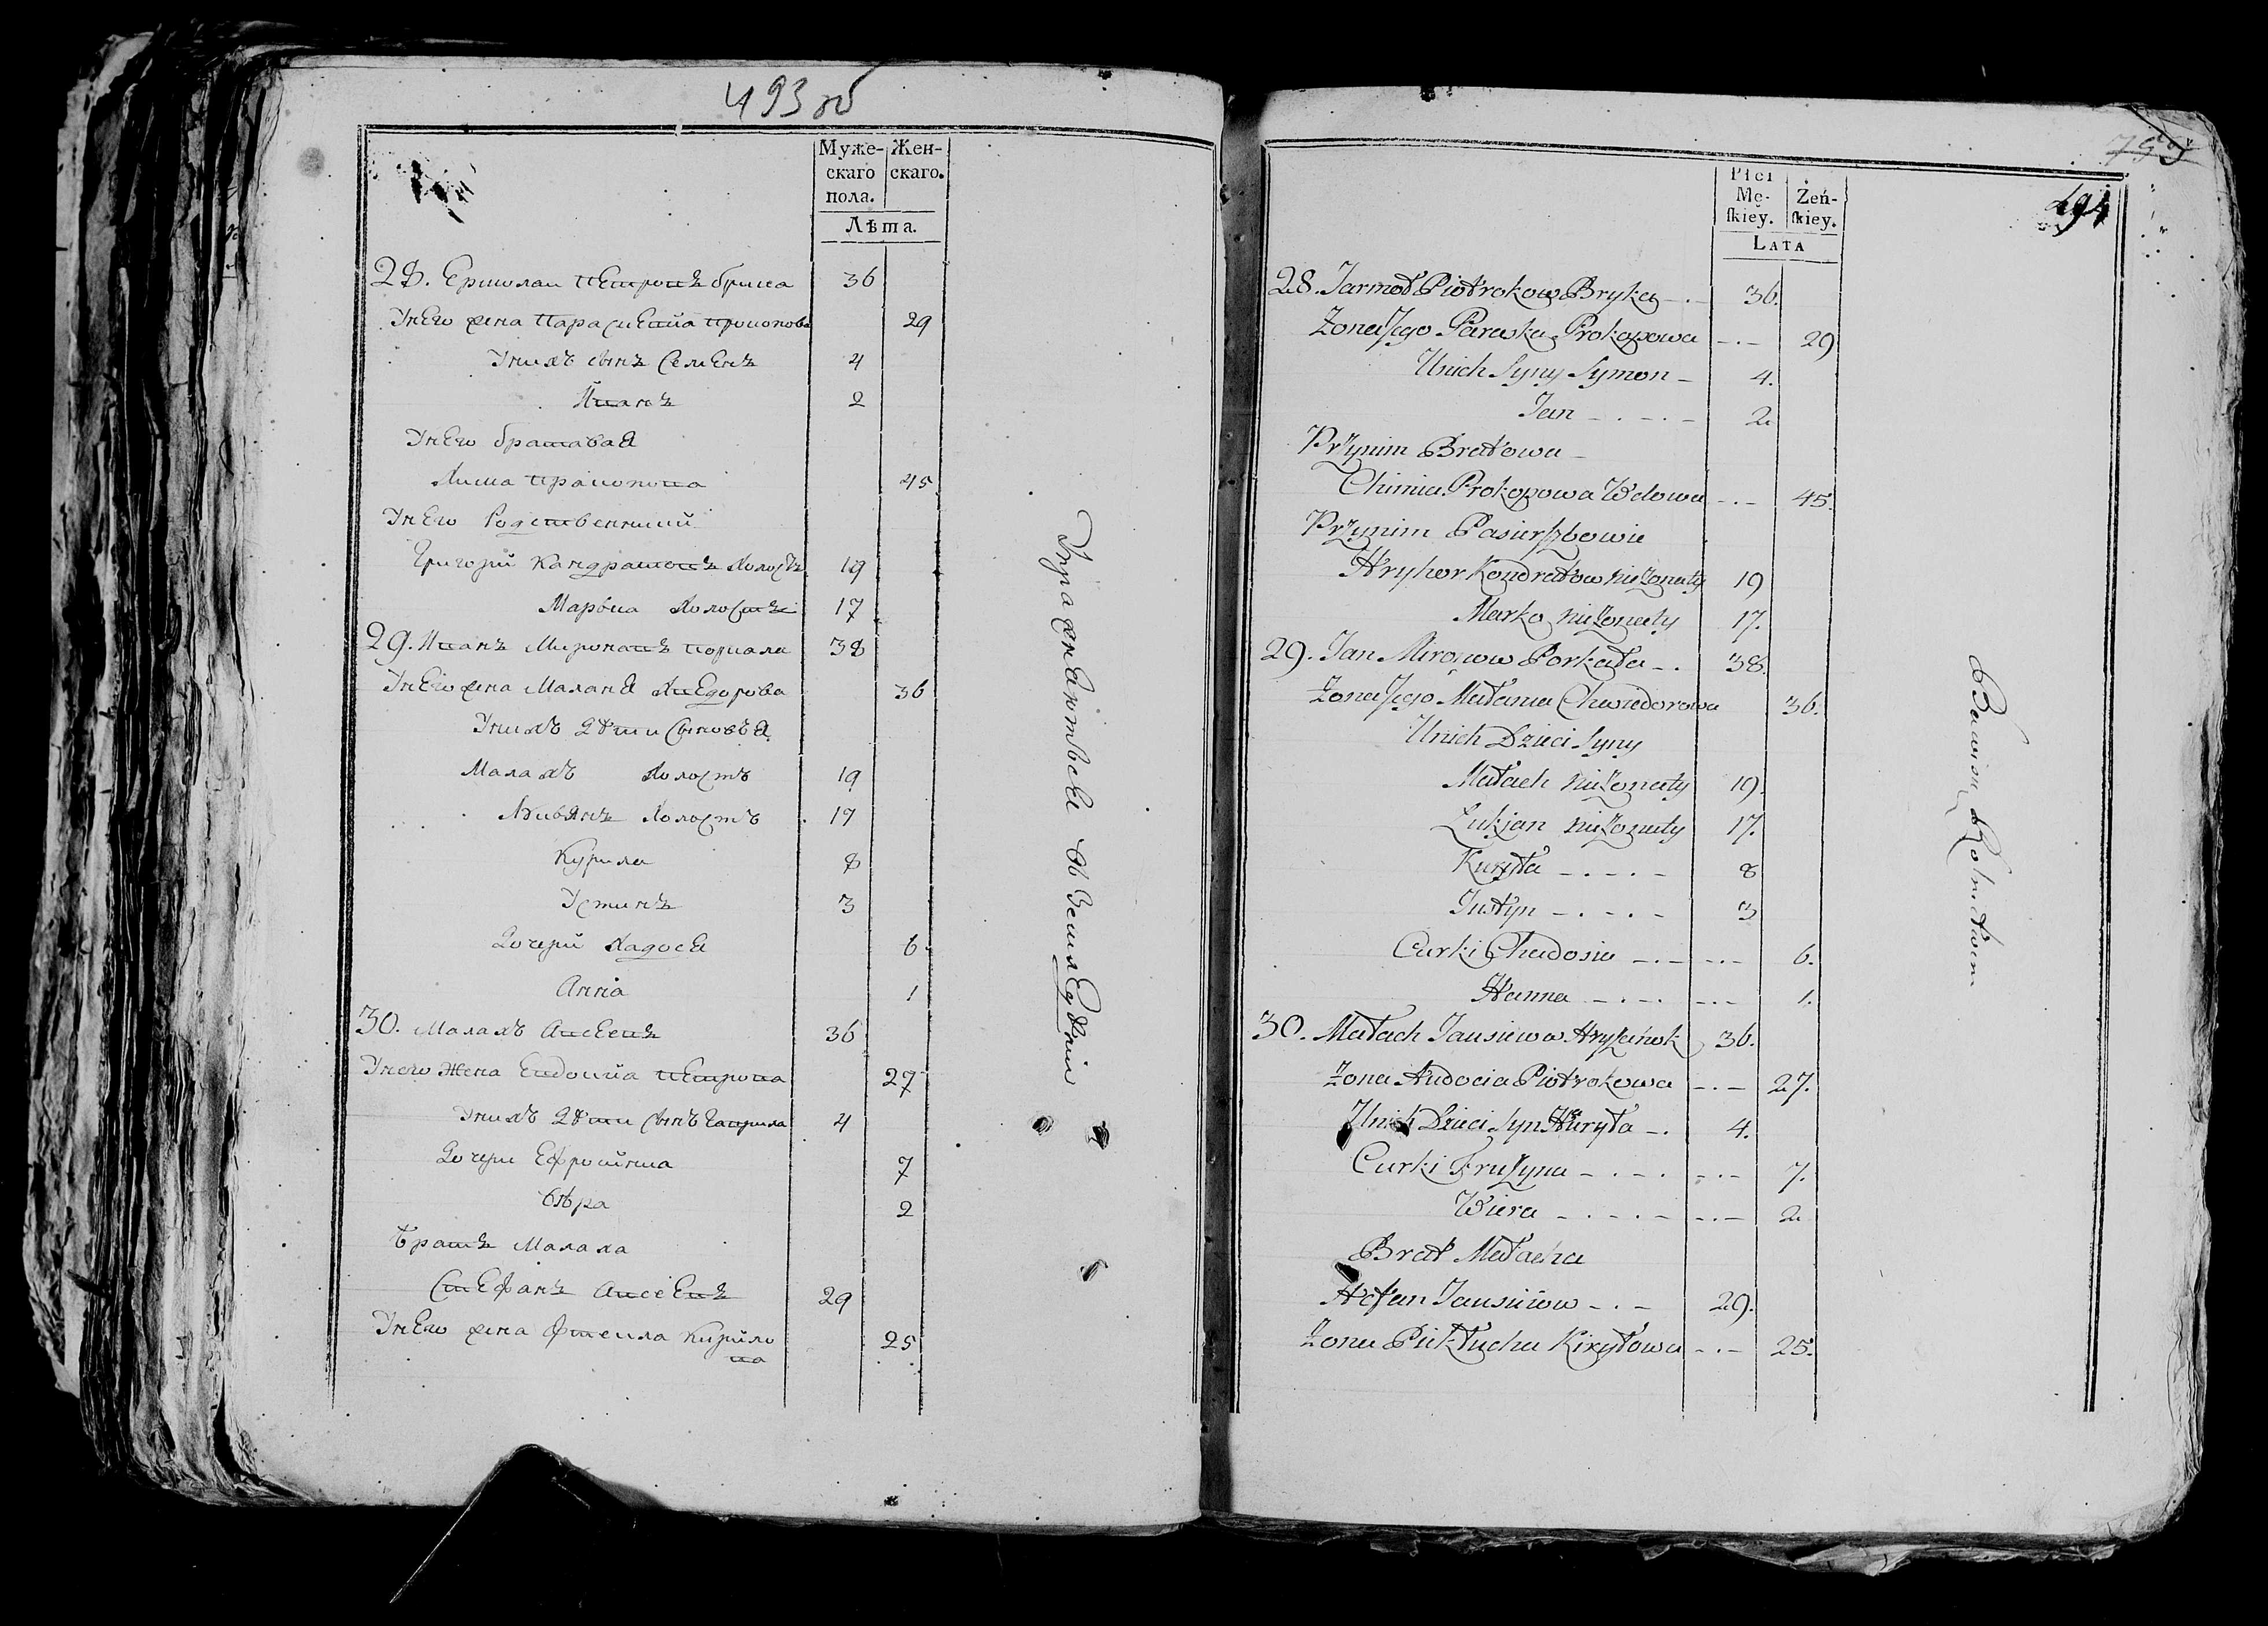 493 об
Муже-
скаго
пола.
Жен-
скаго.
Лѣта.
28. Ермолаи петровъ брика 36
Унего жена Параскевия прокопова 29
Унихъ сынъ Семенъ 4
Иванъ 2
Унего братавая
Химка прокопова 45
Унего Родственники
Григори Кандратовъ Холостъ 19
Марька Холостъ 17
29. Иванъ Миронавъ поркала 38
Унего жена Маланя Хведорова 36
Унихъ Дѣти Сыновья
Малахъ Холостъ 19
Лукьянъ Холостъ 17
Курила 8
Устинъ 3
Дочери Хадося 6
Анна 1
30. Малахъ Авсеевъ 36
Унего Жена Евдокия петрова 27
Унихъ Дѣти Сынъ Гаврила 4
Дочери Ефросинья 7
Вѣра 2
Братъ Малаха
Стефанъ Авсеевъ 29
Унего жена Фтекла Кирило
ва 25
Упражняются в земледѣлии
494
Płci
Mę-
ſkiey.
Zeń-
ſkiey.
LATA
28. Jarmoł Piotrokow Bryka 36.
Zona Jego Paraska Prokopowa 29
Unich Syny Symon 4.
Jan 2
Przynim Bratowa
Chimia Prokopowa Wdowa 45.
Przynim Pasierzbowie
Hryhor Kondratow nieżonaty 19
Marko nieżonaty 17.
29. Jan Mironow Porkała 38.
Zona Jego Małania Chwiedorowa 36.
Unich Dzieci Syny
Małach nieżonaty 19.
Łukjan nieżonaty 17.
Kuryła 8
Justyn 3
Curki Chadosia 6.
Hanna 1.
30. Małach Jausiewow Hryszinok 36.
Zona Audocia Piotrokowa 27.
Unich Dzieci Syn Hauryła 4.
Curki Fruzyna 7.
Wiera 2
Brat Małacha
Stefan Jausiiow 29.
Zona Piekłucha Kiryłowa 25.
Bawią się Rolnictwem